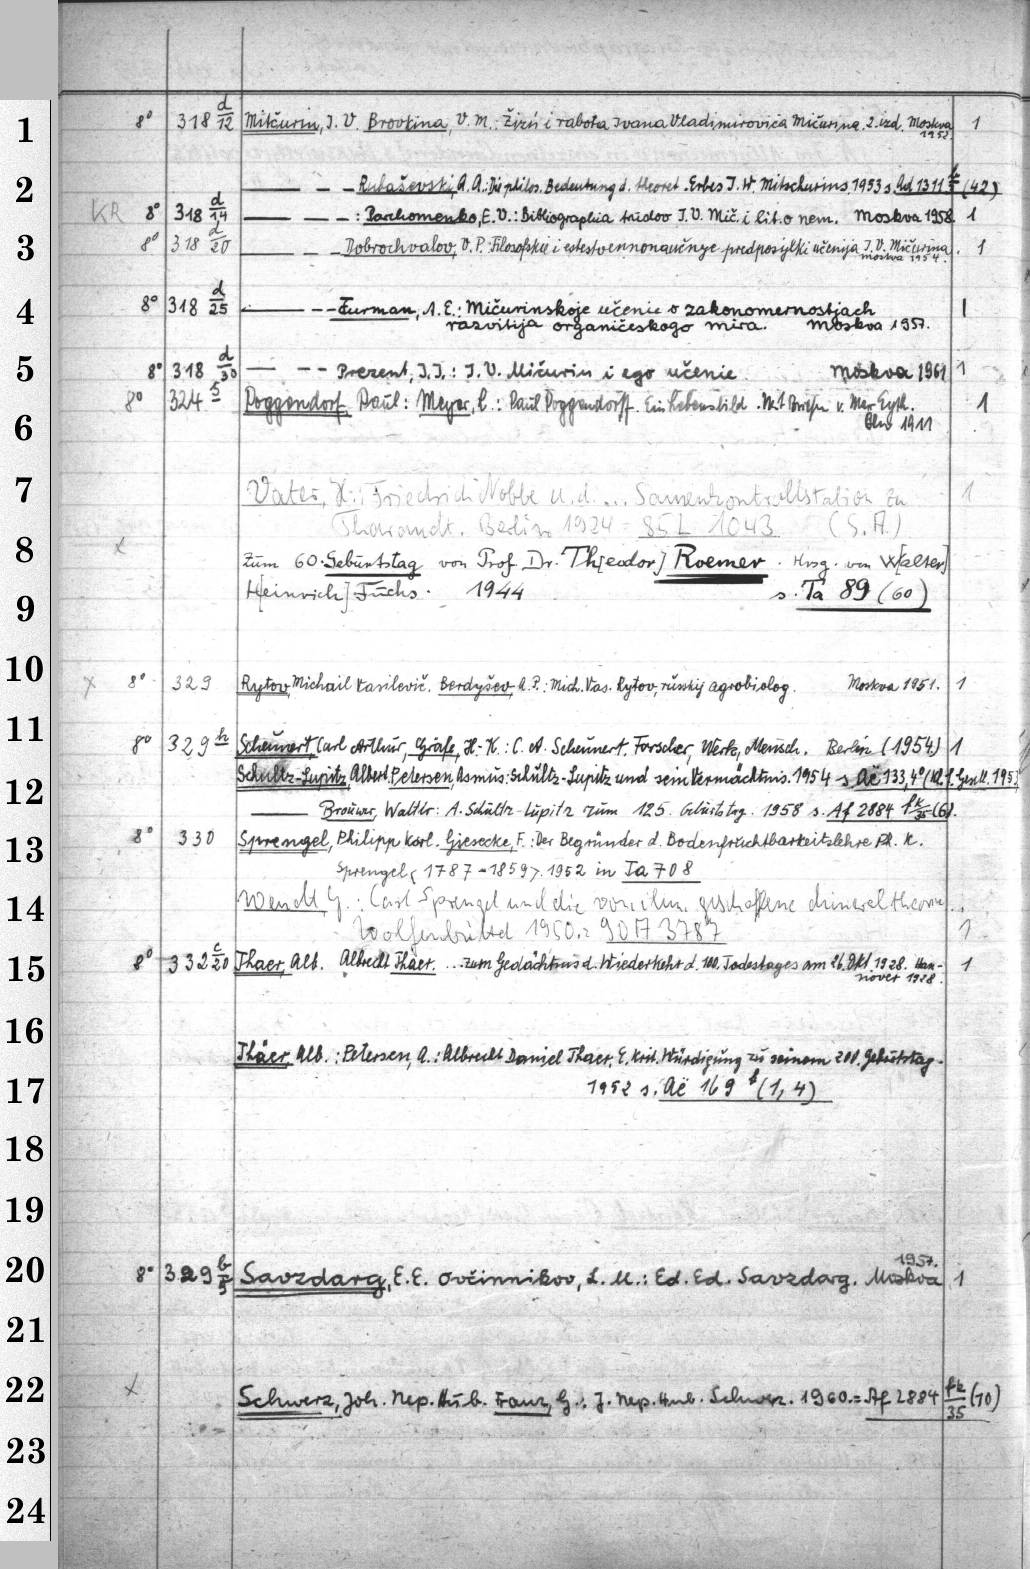 1 8° 318 d/12 Mitčurin, I. V. Brovkina, V. M.: Žizń i rabota Ivana Vladimiroviča Mičurina. 2. izd. Moskva 1952. 1
2 — – – Rubaševski, A. A.: Die philos. Bedeutung d. theoret. Erbes I. W. Mitschurins, 1953 s. Ad 1311 (42)
KR 8° 318 d/14 — – – : Parchomenko, E. V.: Bibliographia trudov I. V. Mič. i lit. o nem. Moskva 1958. 1
3 8° 318 d/20 — – – Dobrochvalov, V. P.: Filosofskie i estestvennonaučnye predposylki učenija I. V. Mičurina. Moskva 1954. 1
4 8° 318 d/25 — – – Furman, A. E.: Mičurinskoje učenie o zakonomernostjach 1
razvitija organičeskogo mira. Moskva 1957.
5 8° 318 d/30 — – – Prezent, I. I.: I. V. Mičurin i ego učenie. Moskva 1961 1
8° 324 5 Poggendorf, Paul: Meyer, C.: Paul Poggendorff. Ein Lebensbild. Mit Briefen v. Max Eyth. 1
6 Bln 1911
7 Vater, H.: Friedrich Nobbe u. d. ... Samenkontrollstation zu 1
Tharandt. Berlin 1924 = 85 L 1043 (S. A.)
8 x Zum 60. Geburtstag von Prof. Dr. Th[eodor] Roemer. Hrsg. von W[alter]
9 H[einrich] Fuchs. 1944 s. Ta 89 (60)
10 x 8° 329 Rytov, Michail Vasilevič. Berdyšev, A. P.: Mich. Vas. Rytov, russkij agrobiolog. Moskva 1951. 1
11 8° 329 h Scheunert, Carl Arthur, Gräfe, H.-K.: C. A. Scheunert. Forscher, Werk, Mensch. Berlin (1954) 1
12 Schultz-Lupitz, Albert. Petersen, Asmus: Schultz-Lupitz und sein Vermächtnis. 1954 s. Aë 133, 4°
— Brouwer, Walther: A. Schultz-Lupitz zum 125. Geburtstag. 1958 s. Af 2884 fk/35 (6).
13 8° 330 Sprengel, Philipp Karl. Giesecke, F.: Der Begründer d. Bodenfruchtbarkeitslehre Ph. K.
Sprengel <1787–1859>. 1952 in Ta 708
14 Wendt, G.: Carl Sprengel und die von ihm geschaffene Mineraltheorie.
Wolfenbüttel 1950. = 90 A 3787 1
15 8° 332 c/20 Thaer, Alb. Albrecht Thaer. ... zum Gedächtnis d. Wiederkehr d. 100. Todestages am 26. Okt. 1928. Han-
nover 1928. 1
16 Thaer, Alb.: Petersen, A.: Albrecht Daniel Thaer. E. krit. Würdigung zu seinem 200. Geburtstag.
17 1952 s. Aë 169 f (1, 4)
18
19
20 8° 329 b/5 Savzdarg, E. E. Ovčinnikov, L. M.: Ed. Ed. Savzdarg. Moskva 1957. 1
21
22 x Schwerz, Joh. Nep. Hub. Franz, G.: J. Nep. Hub. Schwerz. 1960. = Af 2884 fk/35 (10)
23
24